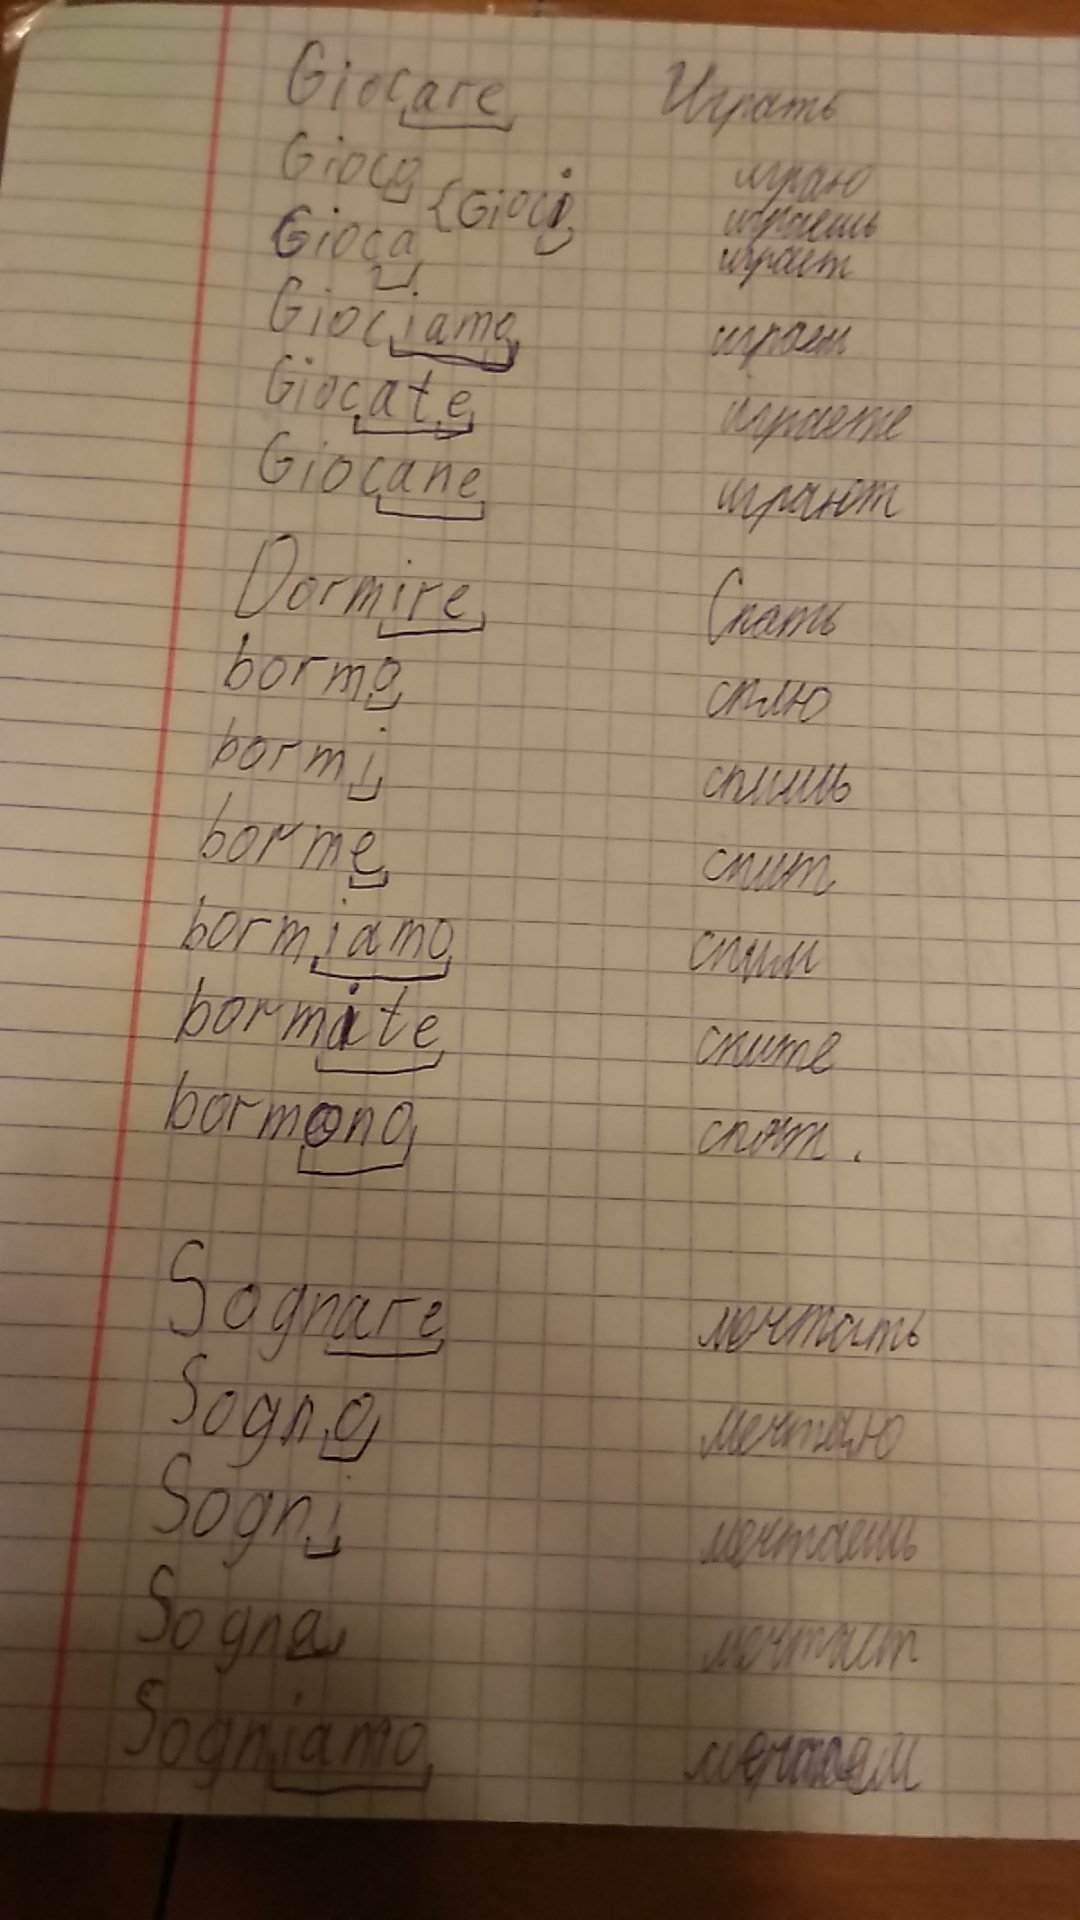 Giocare Играть
Gioco играю
{Gioci играешь
Gioca играет
Giociamo играем
Giocate играете
Giocane играют
Dormire Спать
bormo сплю
bormi спишь
borme спит
bormiamo спим
bormite спите
bormono спят.
Sognare мечтать
Sogno мечтаю
Sogni мечтаешь
Sogna мечтает
Sogniamo мечтаем